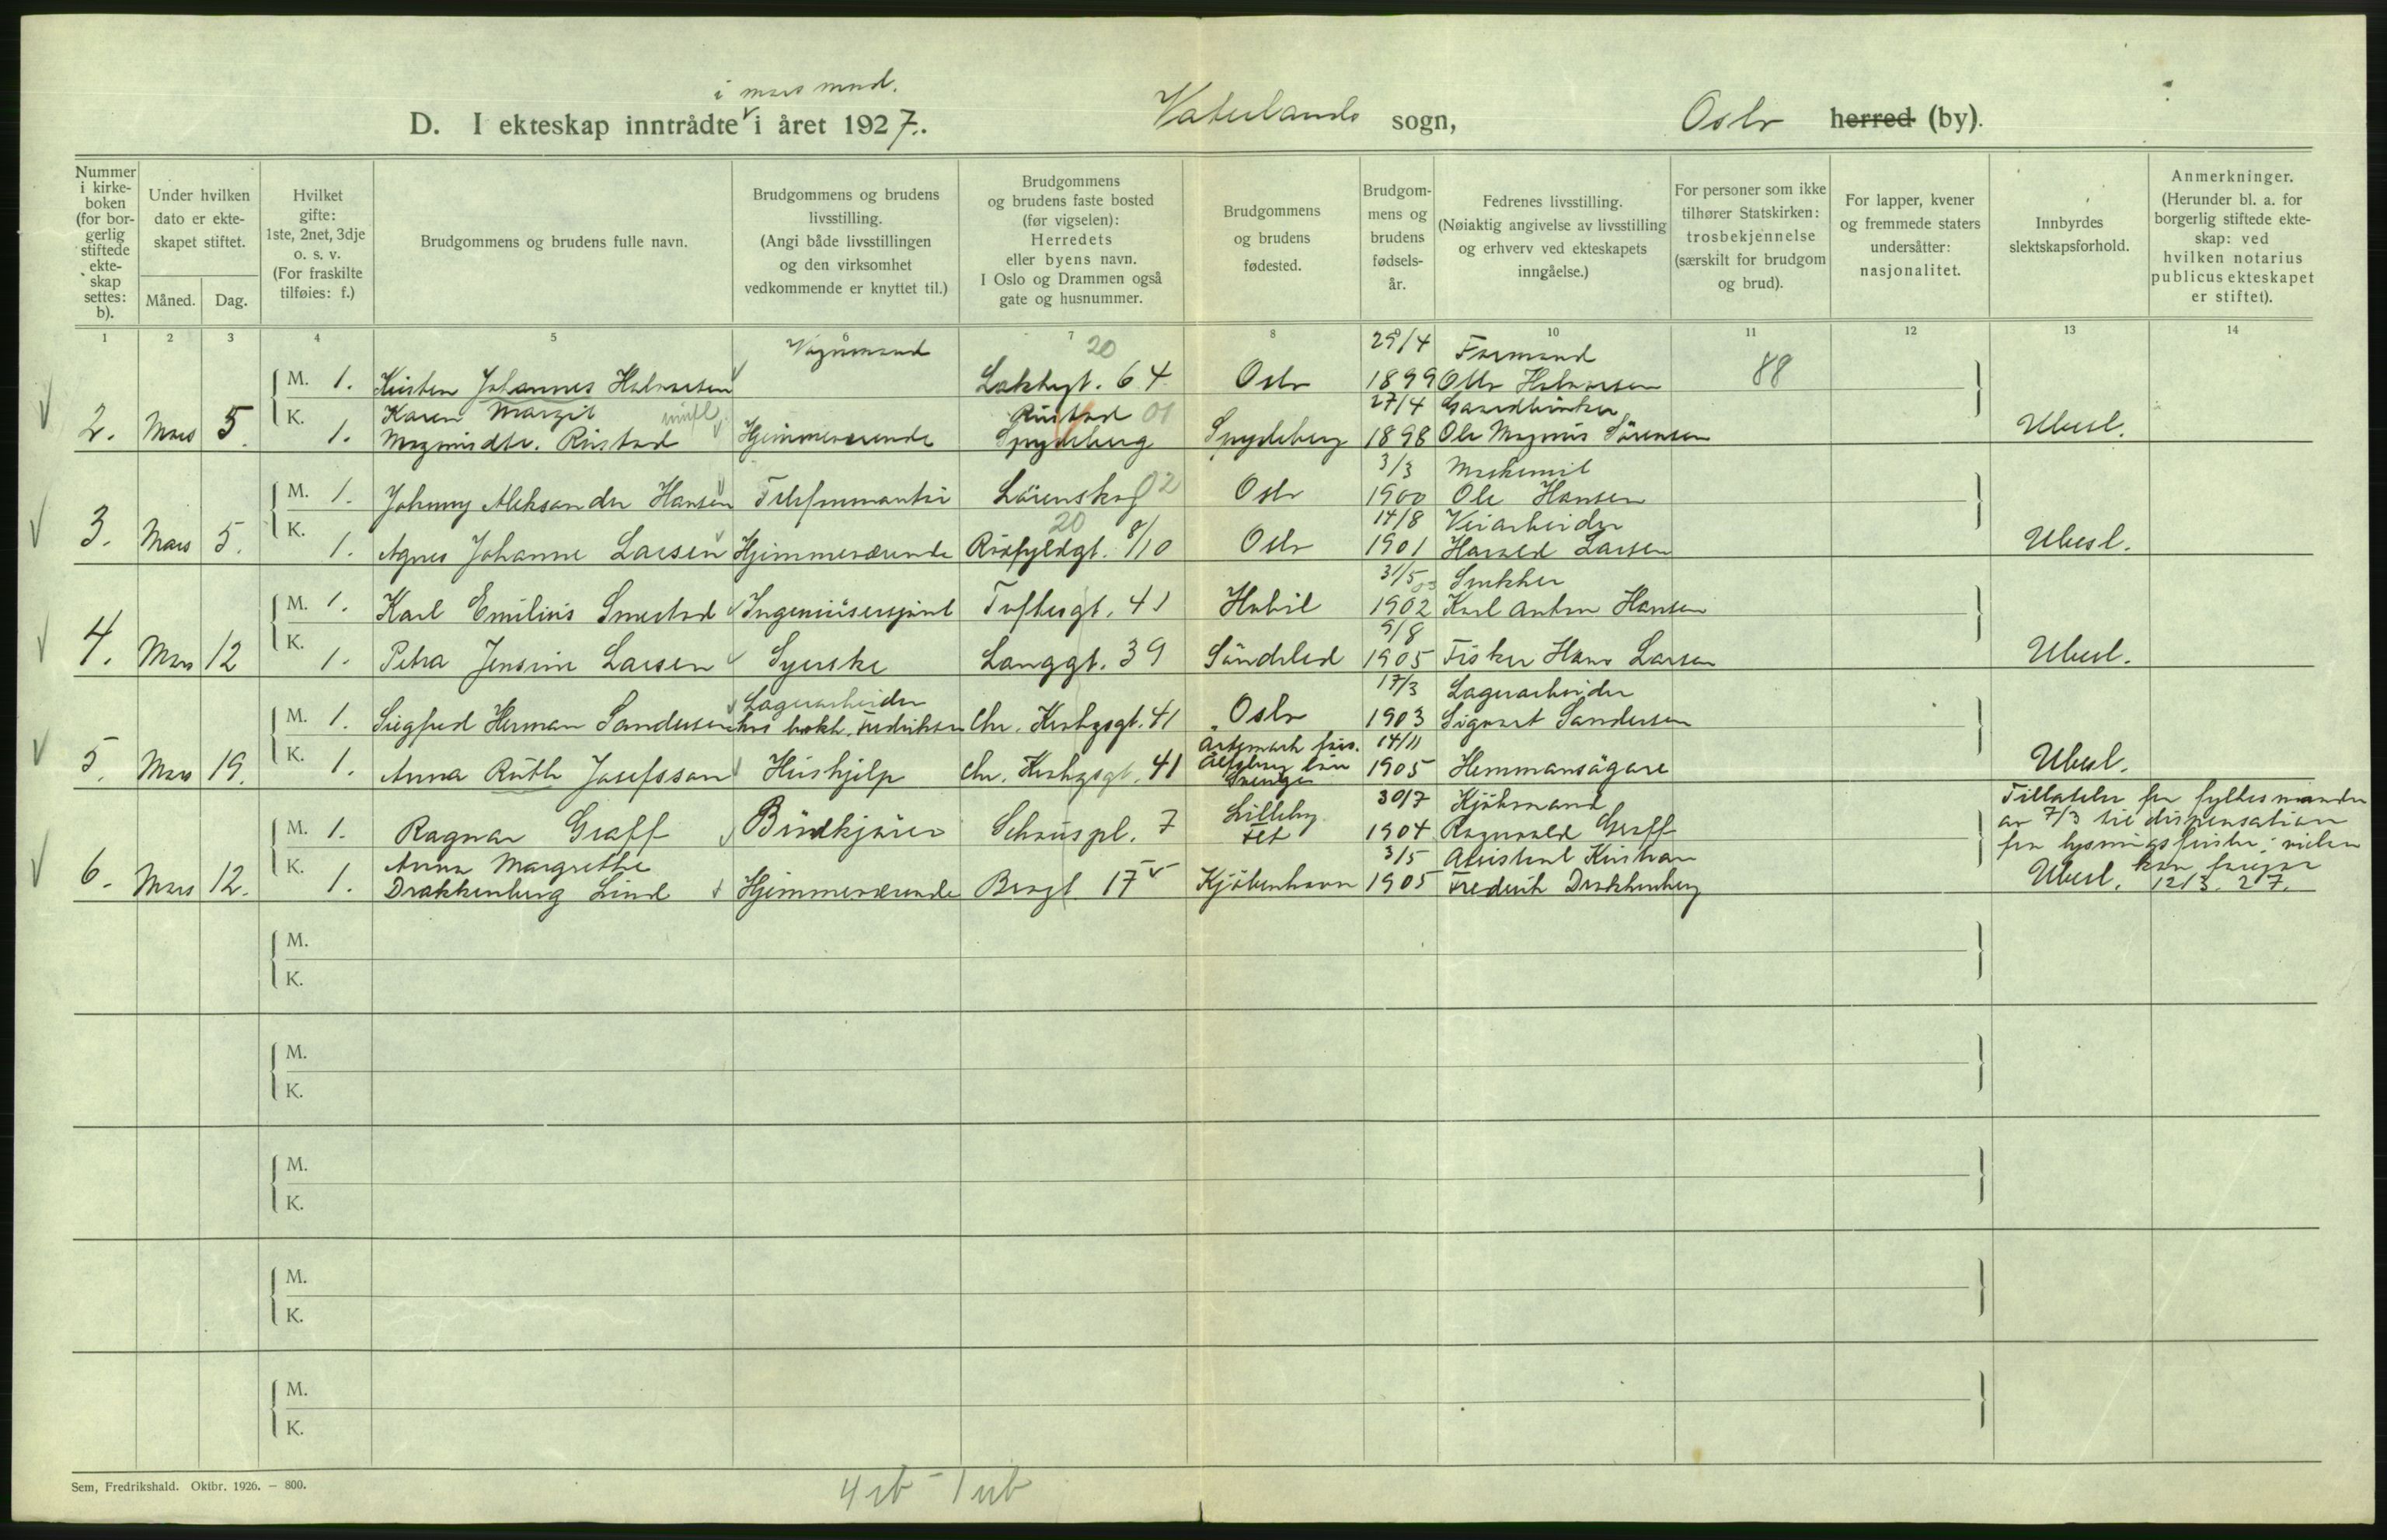 i mars mnd.
D. I ekteskap inntrådte i året 1927. Vaterlands sogn, Oslo herred (by).
Nummer i kirkeboken (for borgerlig stiftede ekteskap settes: b).
Under hvilken dato er ekteskapet stiftet.
Måned. Dag.
Hvilket gifte: 1ste, 2net, 3dje o. s. v. (For fraskilte tilføies: f.)
Brudgommens og brudens fulle navn.
Brudgommens og brudens livsstilling. (Angi både livsstillingen og den virksomhet vedkommende er knyttet til.)
Brudgommens og brudens faste bosted (før vigselen): Herredets eller byens navn. I Oslo og Drammen også gate og husnummer.
Brudgommens og brudens fødested.
Brudgommens og brudens fødselsår.
Fedrenes livsstilling. (Nøiaktig angivelse av livsstilling og erhverv ved ekteskapets inngåelse.)
For personer som ikke tilhører Statskirken: trosbekjennelse (særskilt for brudgom og brud).
For lapper, kvener og fremmede staters undersåtter: nasjonalitet.
Innbyrdes slektskapsforhold.
Anmerkninger. (Herunder bl. a. for borgerlig stiftede ekteskap: ved hvilken notarius publicus ekteskapet er stiftet).
1 2 3 4 5 6 7 8 10 11 12 13 14
Vognmand 20 29/4 Formand
M. 1. Kristen Johannes Halvorsen Lakkegt. 64 Oslo 1899 Olle Halvorsen 88
K. Karen Margit Rustad 01 27/4 Gaardbruker
2. Mars 5. 1. Magnusdtr. Rustad Hjemmeværende Spydeberg Spydeberg 1898 Ole Magnus Sørensen Ubesl.
3/3 Maskinist
M. 1. Johnny Aleksander Hansen Telefonmontør Lørenskog 02 Oslo 1900 Ole Hansen
20 14/8 Veiarbeider
3. Mars 5. K. 1. Agnes Johanne Larsen Hjemmeværende Riofylkegt. 8/10 Oslo 1901 Harald Larsen Ubesl.
31/5 Snekker
M. 1. Karl Emilius Smestad Ingeniørassist Toftesgt. 41 Hobøl 1902 Karl Anton Hansen
9/8
4. Mars 12 K. 1. Petra Jensine Larsen Syerske Langgt. 39 Søndeled 1905 Fisker Hans Larsen Ubesl.
Lagerarbeider 17/3 Lagerarbeider
M. 1. Siegfred Herman Sandersen hos bokh. Fredriksen Chr. Krohgsgt. 41 Oslo 1903 Sigvart Sandersen
Årtemark förs. 14/11
5. Mars 19. K. 1. Anna Ruth Josefsson Hushjelp Chr. Krohgsgt. 41 Älfsborg län 1905 Hemmansägare Ubesl.
Sverige
Lilleby 30/7 Kjøbmand Tillatelse fra fylkesmanden
M. 1. Ragnar Graff Brødkjører Schouspl. 7 Fet 1904 Ragnvald Graff av 7/3 til dispensation
K. Anna Margrethe 3/5 Assistent Kristian fra lysningsfrister; vielsen
6. Mars 12. 1. Drakkenberg Lind Hjemmeværende Berggt. 17 Kjøbenhavn 1905 Frederik Drakkenberg Ubesl. kan foregaa 12/3. 27.
M.
K.
M.
K.
M.
K.
M.
K.
M.
K.
Sem, Fredrikshald. Oktbr. 1926. — 800.